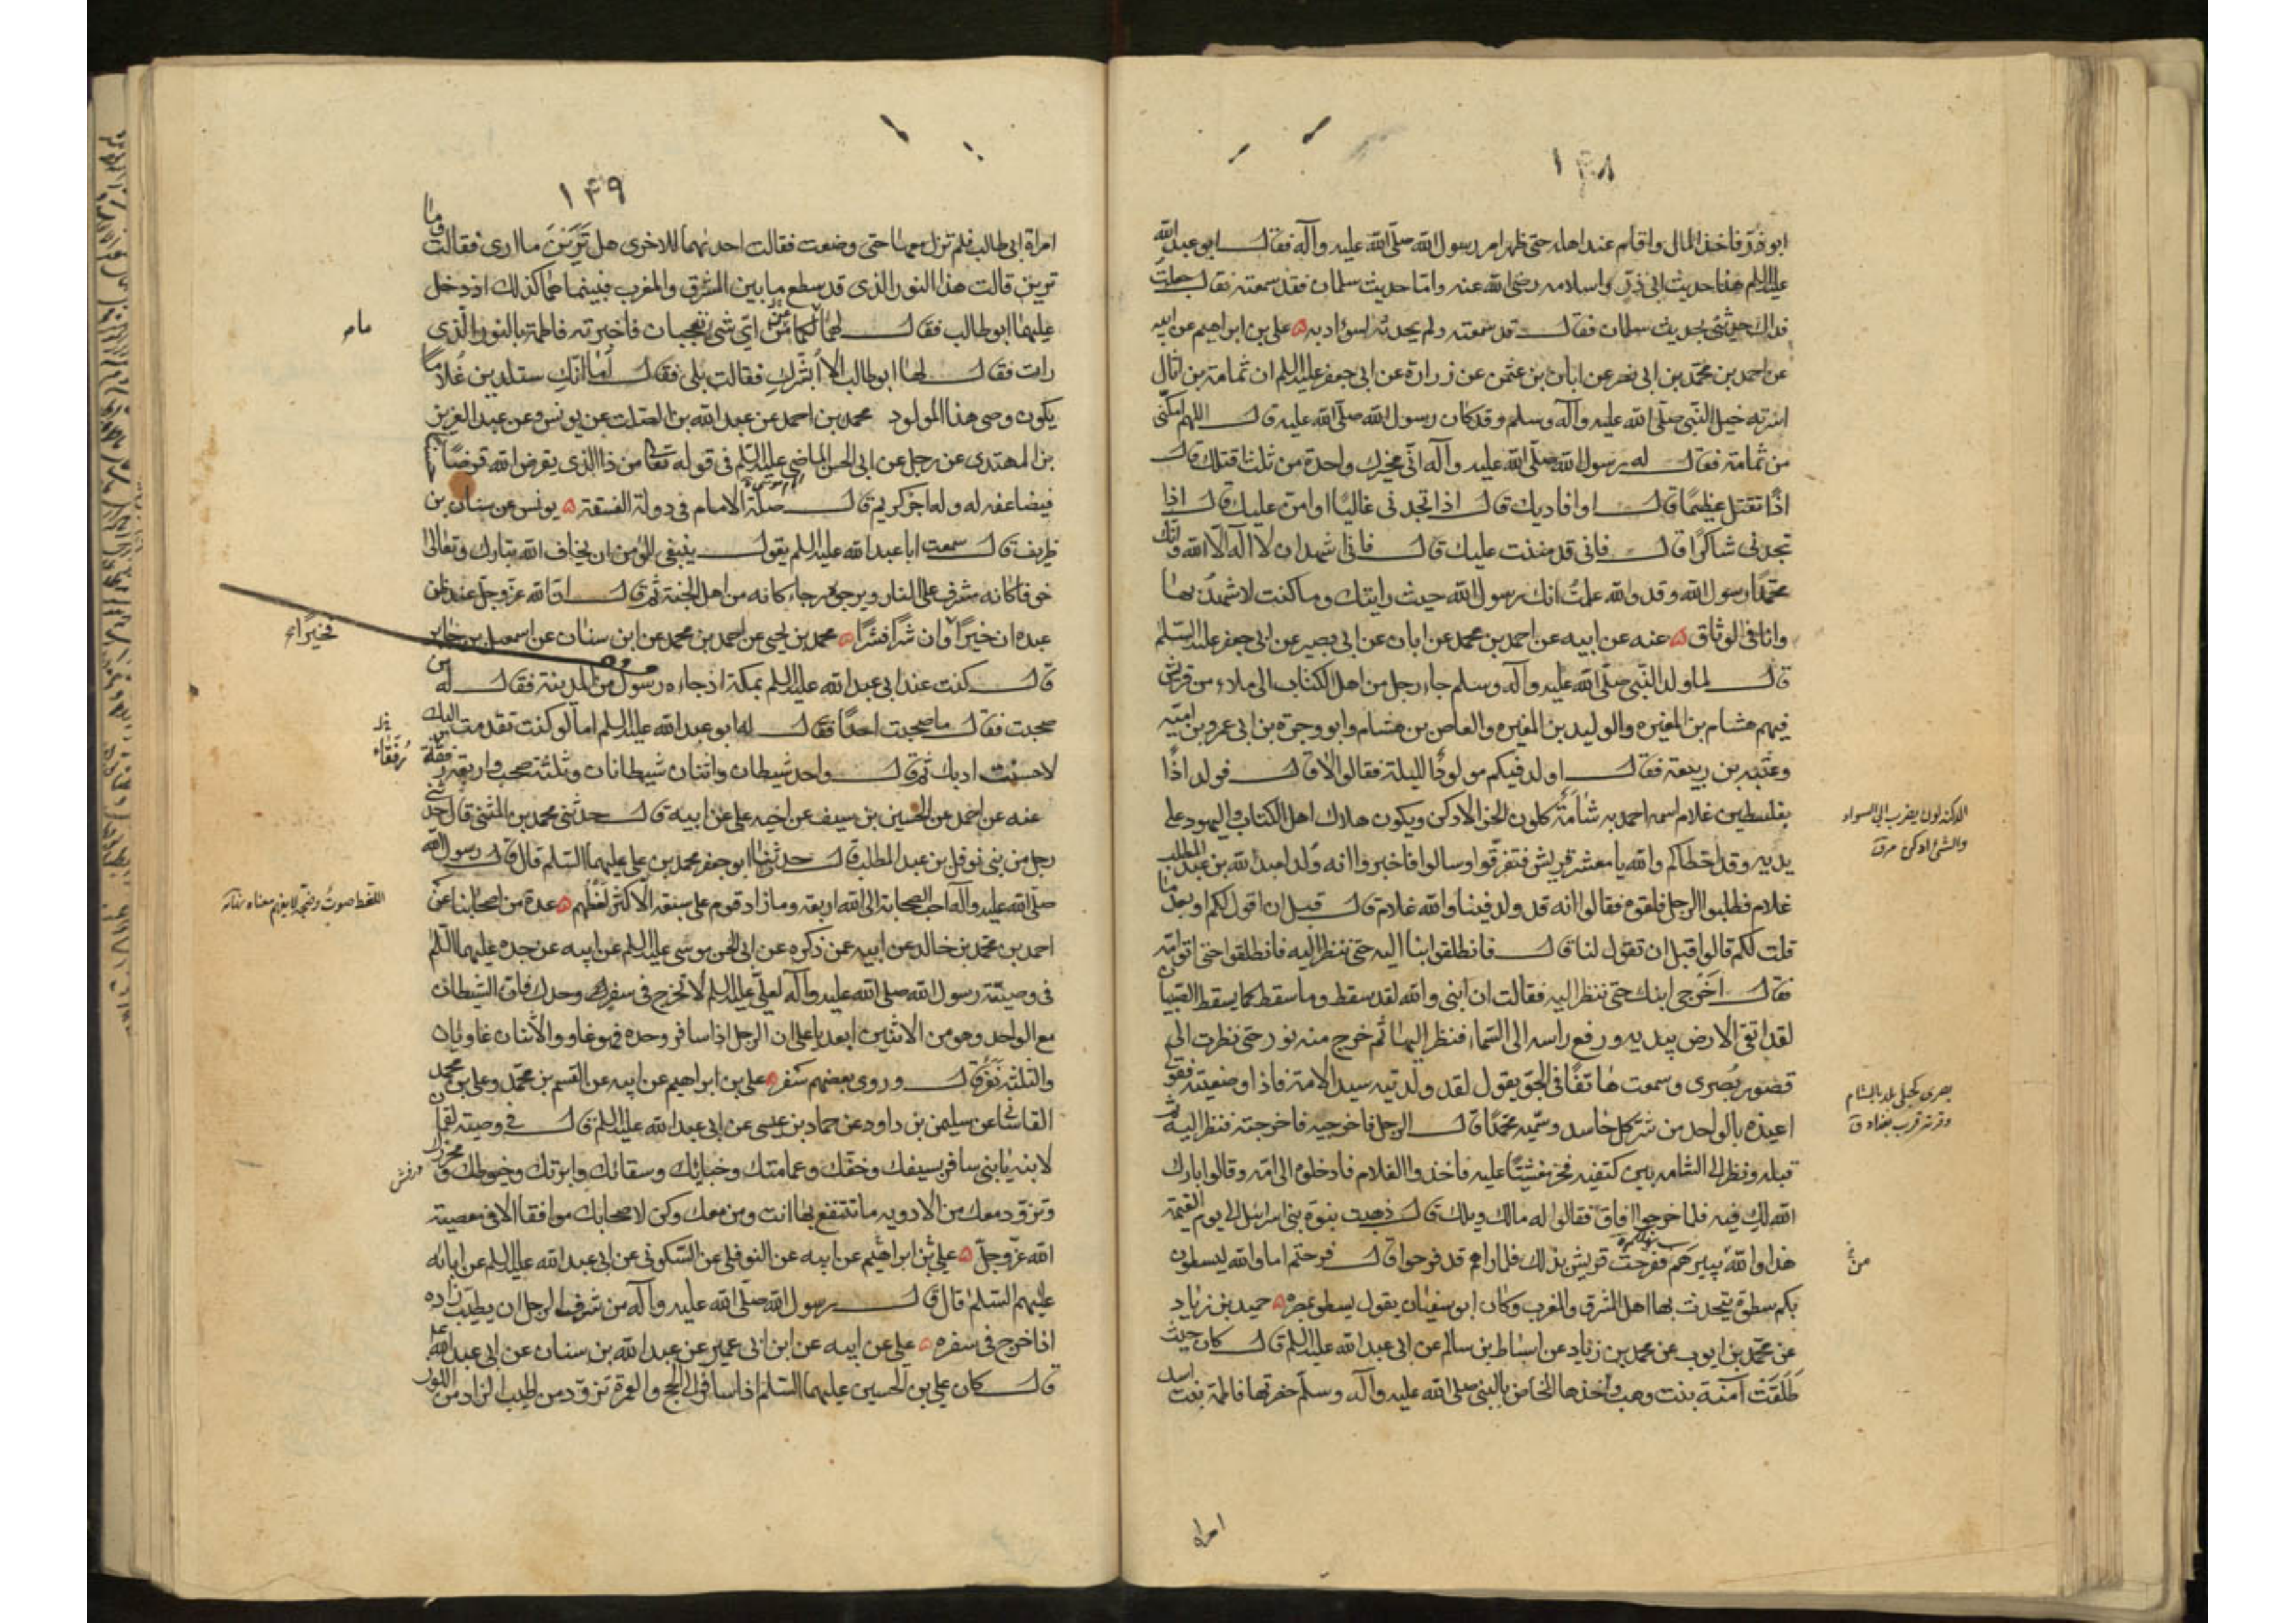 ١٤٨
ابوذر فاخذ المال واقام عند اهله حتى ظهر امر رسول الله صلى الله عليه وآله فقال ابو عبد الله
عليه السلم هذا حديث ابى ذر واسلامه رضى الله عنه واما حديث سلمان فقد سمعته فقال جعلت
فداك حدثنى بحديث سلمان فقال قد سمعته ولم يحدثه لسوء ادبه ۵ على بن ابراهيم عن ابيه
عن احمد بن محمد بن ابى نصر عن ابان بن عثمن عن زرارة عن ابى جعفر عليه السلم ان ثمامة بن اثال
اسرته خيل النبى صلى الله عليه وآله وسلم وقد كان رسول الله صلى الله عليه قال اللهم امكنى
من ثمامة فقال له رسول الله صلى الله عليه وآله انى مخيرك واحدة من ثلث اقتلك قال
اذا تقتل عظيما قال او افاديك قال اذا تجدنى غاليا او امن عليك قال اذا
تجدنى شاكرا قال فانى قد مننت عليك قال فانى اشهد ان لا اله الا الله وانك
محمدا رسول الله وقد والله علمت انك رسول الله حيث رايتك وما كنت لاشهد بها
وانا فى الوثاق ۵ عنه عن ابيه عن احمد بن محمد عن ابان عن ابى بصير عن ابى جعفر عليه السلم
قال لما ولد النبى صلى الله عليه وآله وسلم جاء رجل من اهل الكتاب الى ملاء من قريش
فيهم هشام بن المغيره والوليد بن المغيره والعاص بن هشام وابو وجزة بن ابى عمرو بن امية
وعتبه بن ربيعة فقال اولد فيكم مولود الليلة فقالوا لا قال فولد اذا
بفلسطين غلام اسمه احمد به شامة كلون الخز الادكن ويكون هلاك اهل الكتاب واليهود على
يديه وقد اخطاكم والله يا معشر قريش فتفرقوا وسالوا فاخبروا انه ولد لعبد الله بن عبد المطلب
غلام فطلبوا الرجل فلقوه فقالوا انه قد ولد فينا والله غلام قال قبل ان اقول لكم او بعد ما
قلت لكم قالوا قبل ان تقول لنا قال فانطلقوا بنا اليه حتى ننظر اليه فانطلقوا حتى اتوا امه
فقال اخرجى ابنك حتى ننظر اليه فقالت ان ابنى والله لقد سقط وما سقط كما يسقط الصبيان
لقد اتقى الارض بيديه ورفع راسه الى السماء فنظر اليها ثم خرج منه نور حتى نظرت الى
قصور بصرى وسمعت هاتفا فى الجو يقول لقد ولدتيه سيد الامة فاذا وضعتيه فقولى
اعيذه بالواحد من شر كل حاسد وسميه محمدا قال الرجل فاخرجيه فاخرجته فنظر اليه ثم
قبله ونظر الى الشامه بين كتفيه فخر مغشيا عليه فاخذوا الغلام فادخلوه الى امه وقالوا بارك
الله لك فيه فلما خرجوا افاق فقالوا له مالك ويلك قال ذهبت نبوة بنى اسرائيل الى يوم القيمة
هذا والله يبيرهم ففرحت قريش بذلك فلما راهم قد فرحوا قال فرحتم اما والله ليسطون
بكم سطوة يتحدث بها اهل المشرق والمغرب وكان ابو سفيان يقول يسطو بمصره ۵ حميد بن زياد
عن محمد بن ايوب عن محمد بن زياد عن اسباط بن سالم عن ابى عبد الله عليه السلم قال كان حيث
طلقت آمنة بنت وهب واخذها المخاض بالنبى صلى الله عليه وآله وسلم حضرتها فاطمة بنت اسد
الدكنة لون يضرب الى السواد
والشئ ادكن
بصرى كحبلى بلد بالشام
وقرية قرب بغداد ق
من
امراة
١٤٩
امراة ابى طالب فلم تزل معها حتى وضعت فقالت احديهما للاخرى هل ترين ما ارى فقالت وما
ترين قالت هذا النور الذى قد سطع ما بين المشرق والمغرب فبينما هما كذلك اذ دخل
عليهما ابو طالب فقال لهما ما لكما من اى شئ تعجبان فاخبرته فاطمة بالنور الذى
رات فقال لها ابو طالب الا ابشرك فقالت بلى فقال اما انك ستلدين غلاما
يكون وصى هذا المولود محمد بن احمد عن عبد الله بن الصلت عن يونس وعن عبد العزيز
بن المهتدى عن رجل عن ابى الحسن الماضى عليه السلم فى قوله تعالى من ذا الذى يقرض الله قرضا
فيضاعفه له وله اجر كريم قال صلة الامام فى دولة الفسقة ۵ يونس عن سنان بن
ظريف قال سمعت ابا عبد الله عليه السلم يقول ينبغى للمؤمن ان يخاف الله تبارك وتعالى
خوفا كانه مشرف على النار ويرجوه رجاء كانه من اهل الجنة ثم قال ان الله عز وجل عند ظن
عبده ان خيرا وان شرا فشرا ۵ محمد بن يحيى عن احمد بن محمد عن ابن سنان عن اسمعيل بن جابر
قال كنت عند ابى عبد الله عليه السلم بمكة اذ جاءه رسول من المدينة فقال له من
صحبت فقال ما صحبت احدا فقال له ابو عبد الله عليه السلم اما لو كنت تقدمت اليك
لاحسنت ادبك ثم قال واحد شيطان واثنان شيطانان وثلثة صحب واربعة رفقة
عنه عن احمد عن الحسين بن سيف عن اخيه على عن ابيه قال حدثنى محمد بن المثنى قال حدثنى
رجل من بنى نوفل بن عبد المطلب قال حدثنى ابو جعفر محمد بن على عليهما السلم قال قال رسول الله
صلى الله عليه وآله احب الصحابة الى الله اربعة وما زاد قوم على سبعة الا كثر لغطهم ۵ عدة من اصحابنا عن
احمد بن محمد بن خالد عن ابيه عمن ذكره عن ابى الحسن موسى عليه السلم عن ابيه عن جده عليهما السلم
فى وصيته رسول الله صلى الله عليه وآله لعلى عليه السلم لا تخرج فى سفرك وحدك فان الشيطان
مع الواحد وهو من الاثنين ابعد يا على ان الرجل اذا سافر وحده فهو غاو والاثنان غاويان
والثلثة نفر قال وروى بعضهم سفر ۵ على بن ابراهيم عن ابيه عن القسم بن محمد وعلى بن محمد
القاسانى عن سليمن بن داود عن حماد بن عيسى عن ابى عبد الله عليه السلم قال فى وصية لقمان
لابنه يا بنى سافر بسيفك وخفك وعمامتك وخبائك وسقائك وابرتك وخيوطك ومخرزك
وتزود معك من الادويه ما تنتفع بها انت ومن معك وكن لاصحابك موافقا الا فى معصية
الله عز وجل ۵ على بن ابراهيم عن ابيه عن النوفلى عن السكونى عن ابى عبد الله عليه السلم عن ابائه
عليهم السلم قال قال رسول الله صلى الله عليه وآله من شرف الرجل ان يطيب زاده
اذا خرج فى سفره ۵ على عن ابيه عن ابن ابى عمير عن عبد الله بن سنان عن ابى عبد الله
قال كان على بن الحسين عليهما السلم اذا سافر الى الحج والعمرة تزود من اطيب الزاد من اللوز
فخيرا
رفقاء
اللغط صوت وضجة لا يفهم معناه